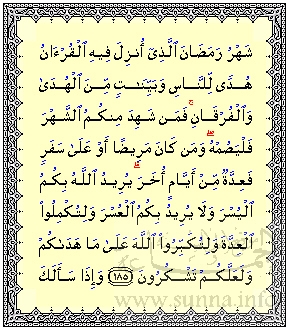 شَهْرُ رَمَضَانَ ٱلَّذِىٓ أُنزِلَ فِيهِ ٱلْقُرْءَانُ
هُدًى لِّلنَّاسِ وَبَيِّنَٰتٍ مِّنَ ٱلْهُدَىٰ
وَٱلْفُرْقَانِ ۚ فَمَن شَهِدَ مِنكُمُ ٱلشَّهْرَ
فَلْيَصُمْهُ ۖ وَمَن كَانَ مَرِيضًا أَوْ عَلَىٰ سَفَرٍ
فَعِدَّةٌ مِّنْ أَيَّامٍ أُخَرَ ۗ يُرِيدُ ٱللَّهُ بِكُمُ
ٱلْيُسْرَ وَلَا يُرِيدُ بِكُمُ ٱلْعُسْرَ وَلِتُكْمِلُوا۟
ٱلْعِدَّةَ وَلِتُكَبِّرُوا۟ ٱللَّهَ عَلَىٰ مَا هَدَىٰكُمْ
وَلَعَلَّكُمْ تَشْكُرُونَ ١٨٥ وَإِذَا سَأَلَكَ
www.sunna.info